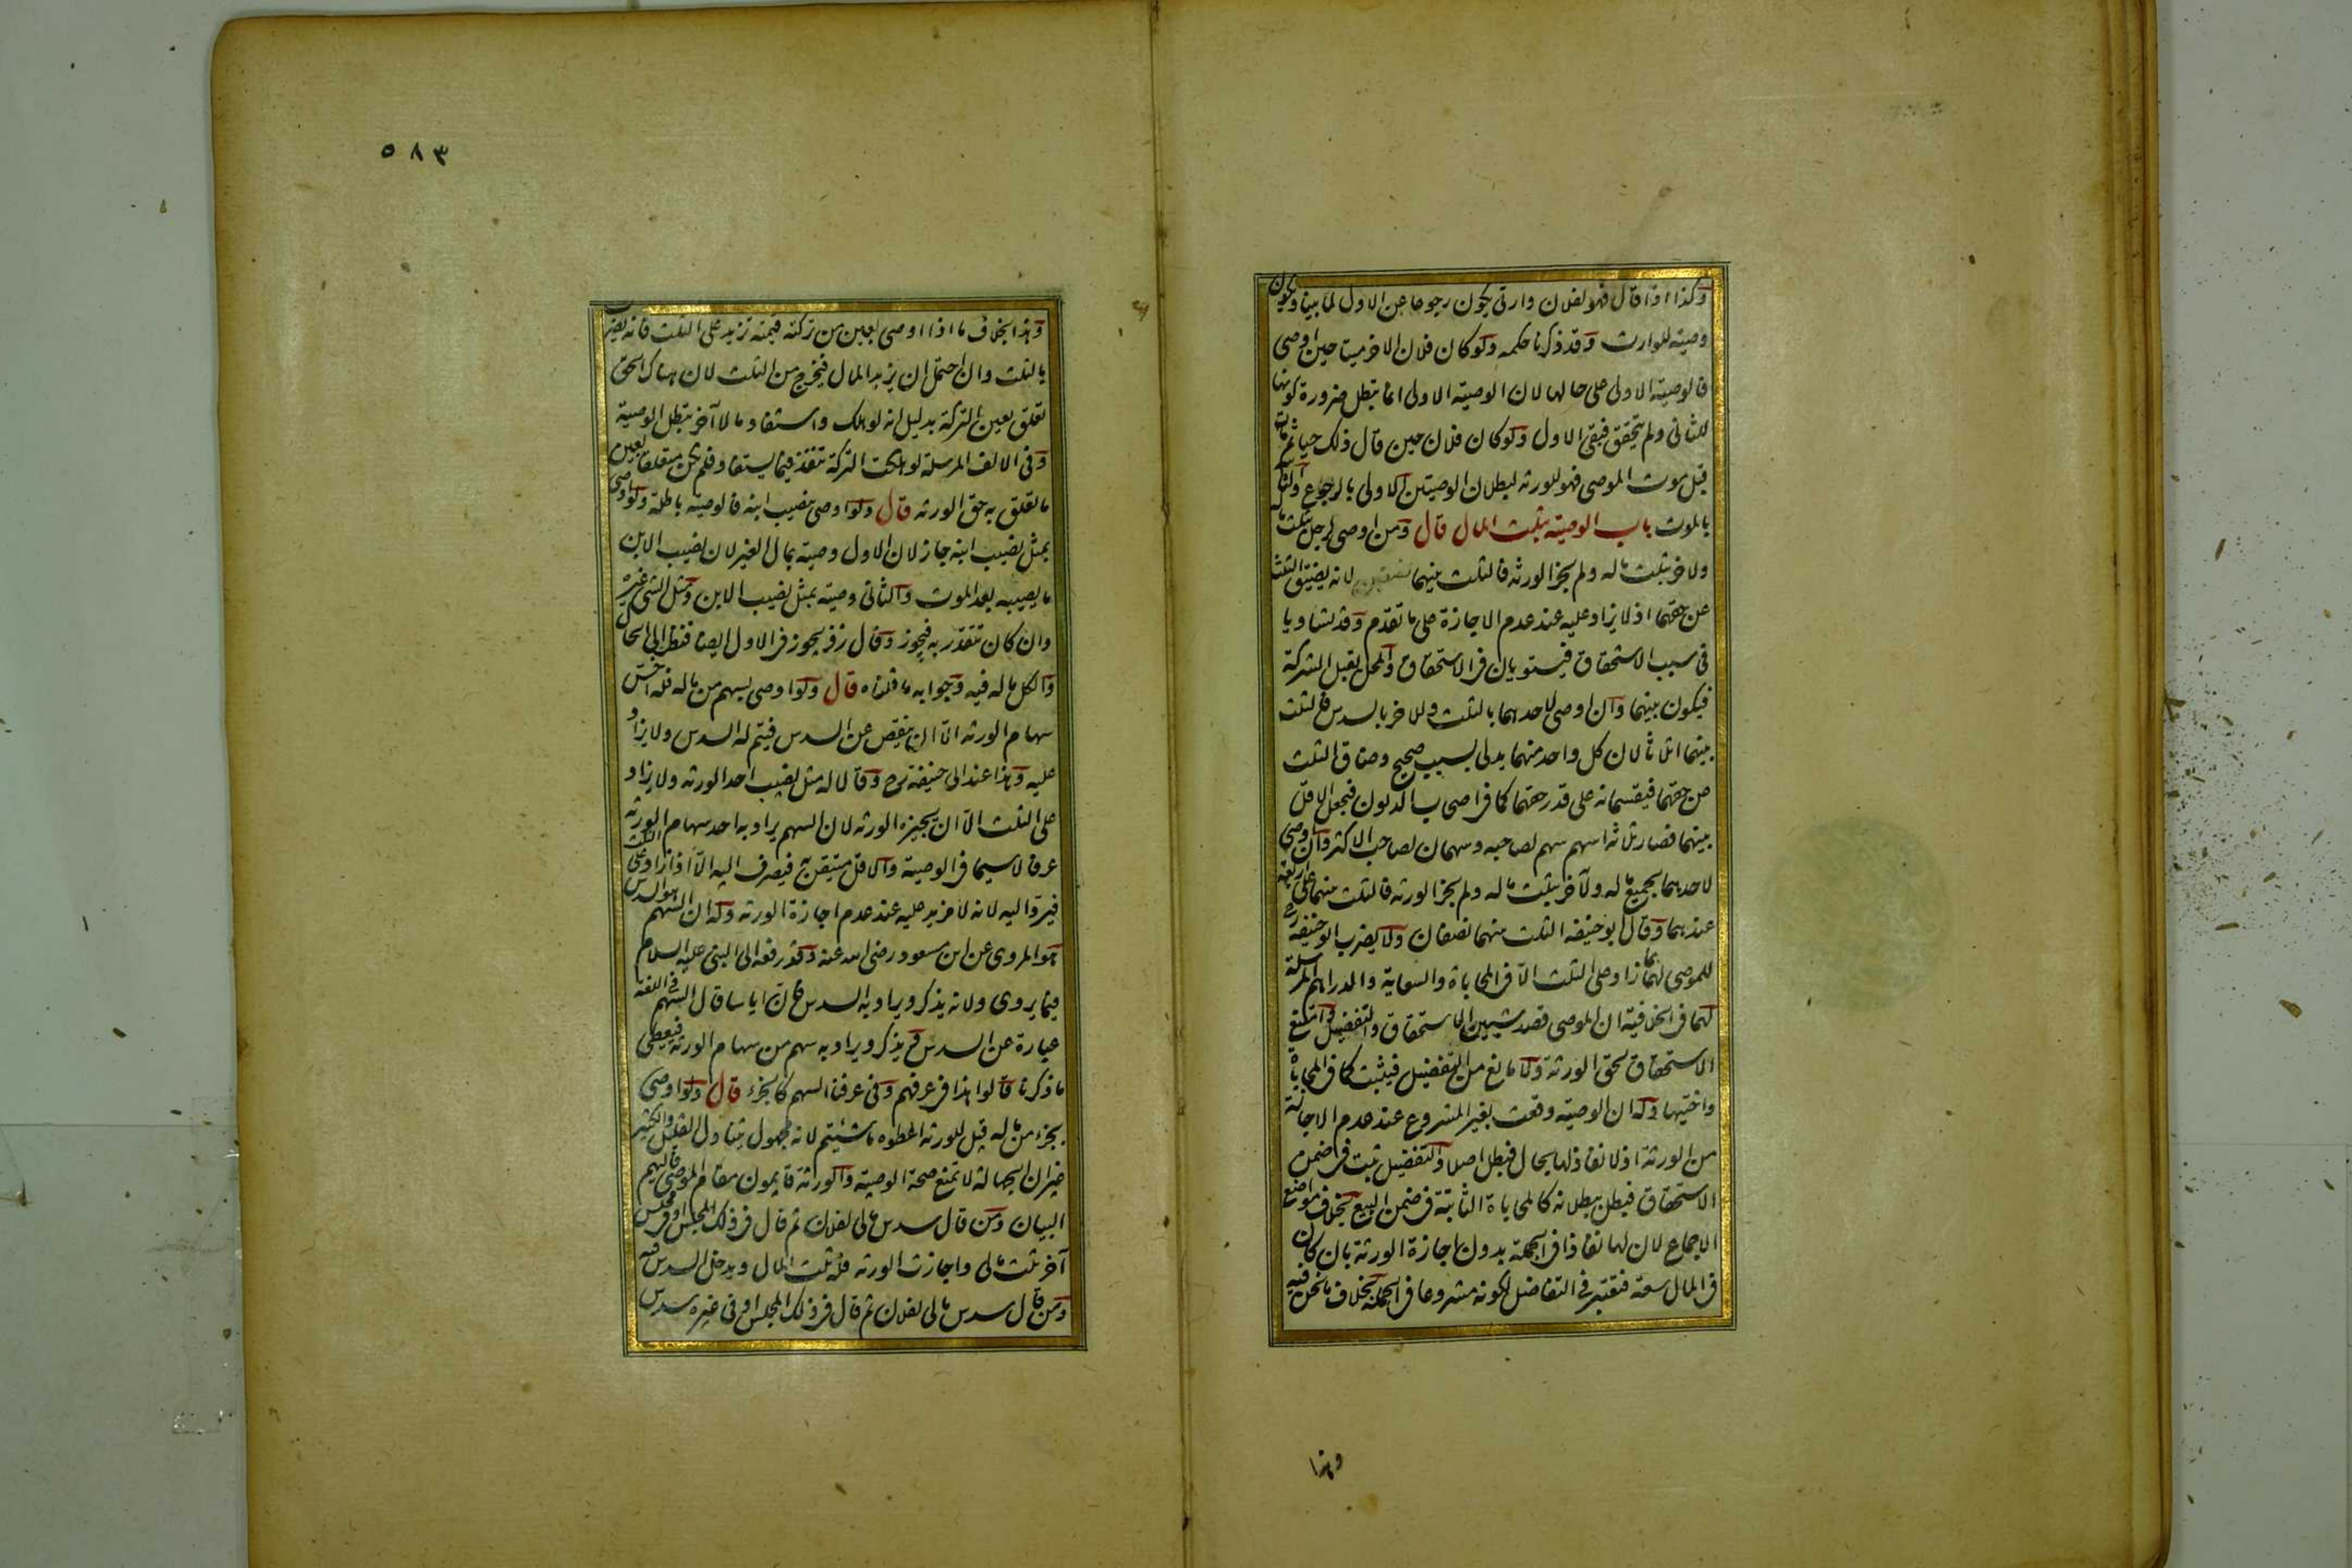 وكذا اذا قال فهو لفلان وارثى يكون رجوعا عن الاول لما بينا ويكون
وصية للوارث وقد ذكرنا حكمه ولو كان فلان الاخر ميتا حين اوصى
فالوصية الاولى على حالها لان الوصية الاولى انما تبطل ضرورة كونها
للثانى ولم يتحقق فبقى الاول ولو كان فلان حين قال ذلك حيا ثم مات
قبل موت الموصى فهو للورثه لبطلان الوصيتين الاولى بالرجوع والثانية
بالموت باب الوصية بثلث المال قال ومن اوصى لرجل بثلث ماله
ولاخر بثلث ماله ولم يجز الورثه فالثلث بينهما لانه يضيق الثلث
عن حقهما اذ لا يزاد عليه عند عدم الاجازة على ما تقدم وقد تساويا
فى سبب الاستحقاق فيستويان فى الاستحقاق والمحل يقبل الشركة
فيكون بينهما وان اوصى لاحدهما بالثلث وللاخر بالسدس فالثلث
بينهما اثلاثا لان كل واحد منهما يدلى بسبب صحيح وضاق الثلث
عن حقهما فيقسمانه على قدر حقهما كما فى اصحاب الديون فيجعل الاقل
بينهما فصار ثلاثة اسهم سهم لصاحبه وسهمان لصاحب الاكثر وان اوصى
لاحدهما بجميع ماله ولآخر بثلث ماله ولم يجز الورثه فالثلث بينهما على اربعة
عندهما وقال ابو حنيفه الثلث بينهما نصفان ولا يضرب ابو حنيفه رح
للموصى له بما زاد على الثلث الا فى المحاباة والسعاية والدراهم المرسلة
لهما فى الخلافية ان الموصى قصد شيئين الاستحقاق والتفضيل وامتنع
الاستحقاق لحق الورثة ولا مانع من التفضيل فيثبت كما فى المحاباة
واختيها وله ان الوصية وقعت بغير المشروع عند عدم الاجازة
من الورثة اذ لا نفاذ لها بحال فبطل اصلا والتفضيل ثبت فى ضمن
الاستحقاق فبطل ببطلانه كالمحاباة الثابتة فى ضمن البيع بخلاف مواضع
الاجماع لان لها نفاذا فى الجملة بدون اجازة الورثة بان كان
فى المال سعة فتعتبر فى التفاضل لكونه مشروعا فى الجملة بخلاف ما نحن فيه
وهذا
٥٨٣
وهذا بخلاف ما اذا اوصى بعين من تركته قيمته تزيد على الثلث فانه يضرب
بالثلث وان احتمل ان يزيد المال فيخرج من الثلث لان هناك الحق
تعلق بعين التركة بدليل انه لو هلك واستفاد مالا آخر تبطل الوصية
وفى الالف المرسلة لو هلكت التركة تنفذ فيما يستفاد فلم يكن متعلقا بعين
ما تعلق به حق الورثه قال ولو اوصى بنصيب ابنه فالوصية باطلة ولو اوصى
بمثل نصيب ابنه جاز لان الاول وصية بمال الغير لان نصيب الابن
ما يصيبه بعد الموت والثانى وصية بمثل نصيب الابن ومثل الشئ غيره
وان كان يتقدر به فيجوز وقال زفر يجوز فى الاول ايضا فنظر الى الحال
والكل ماله فيه وجوابه ما قلناه قال ولو اوصى بسهم من ماله فله اخس
سهام الورثه الا ان ينقص عن السدس فيتم له السدس ولا يزاد
عليه وهذا عند ابى حنيفة رح وقالا له مثل نصيب احد الورثه ولا يزاد
على الثلث الا ان يجيزه الورثه لان السهم يراد به احد سهام الورثه
عرفا لا سيما فى الوصية والاقل متيقن به فيصرف اليه الا اذا زاد على الثلث
فيرد اليه لانه لا مزيد عليه عند عدم اجازة الورثه وله ان السهم هو السدس
هو المروى عن ابن مسعود رضى الله عنه وقد رفعه الى النبى عليه السلام
فيما يروى ولانه يذكر ويراد به السدس فان اياسا قال السهم فى اللغة
عبارة عن السدس ويذكر ويراد به سهم من سهام الورثه فيعطى
ما ذكرنا قالوا هذا فى عرفهم وفى عرفنا السهم كالجزء قال ولو اوصى
بجزء من ماله قيل للورثه اعطوه ما شئتم لانه مجهول يتناول القليل والكثير
غير ان الجهالة لا تمنع صحة الوصية والورثة قايمون مقام الموصى فاليهم
البيان ومن قال سدس مالى لفلان ثم قال فى ذلك المجلس او فى مجلس
آخر ثلث مالى واجازت الورثه فله ثلث المال ويدخل السدس فيه
ومن قال سدس مالى لفلان ثم قال فى ذلك المجلس او فى غيره سدس